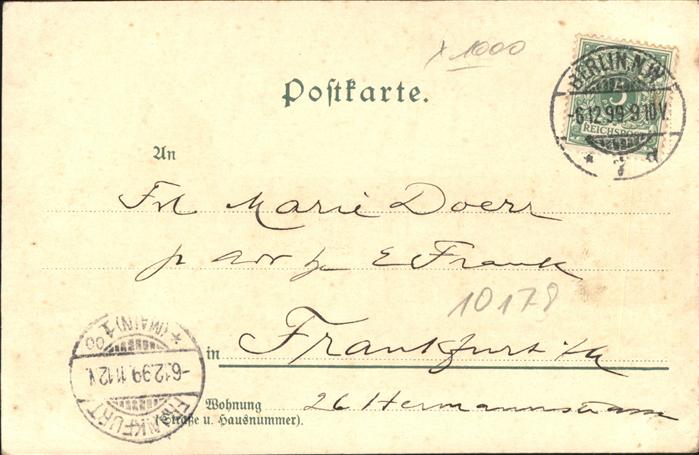 x 1000
Postkarte.
BERLIN N.W.
-6.12.99.9-10V.
* 7 d
5
REICHSPOST
An
Frl Marie Doerr
p adr E Frank
10178
in Frankfurt a/M
Wohnung 26 Hermannstrasse
(Straße u. Hausnummer).
FRANKFURT
-6.12.99. 11-12V.
* (MAIN) 1